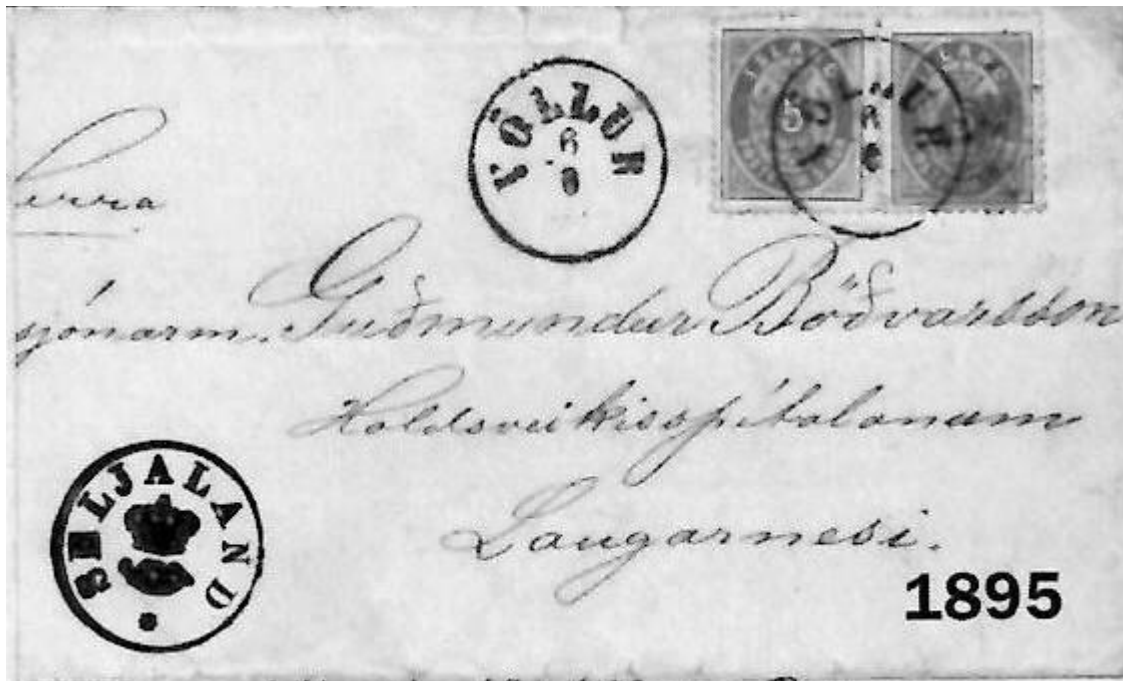 VÖLLUR
5
VÖLLUR
Herra
sjónarm. Guðmundur Böðvarsson
Holdsveikisspítalanum
Laugarnesi.
SELJALAND
1895